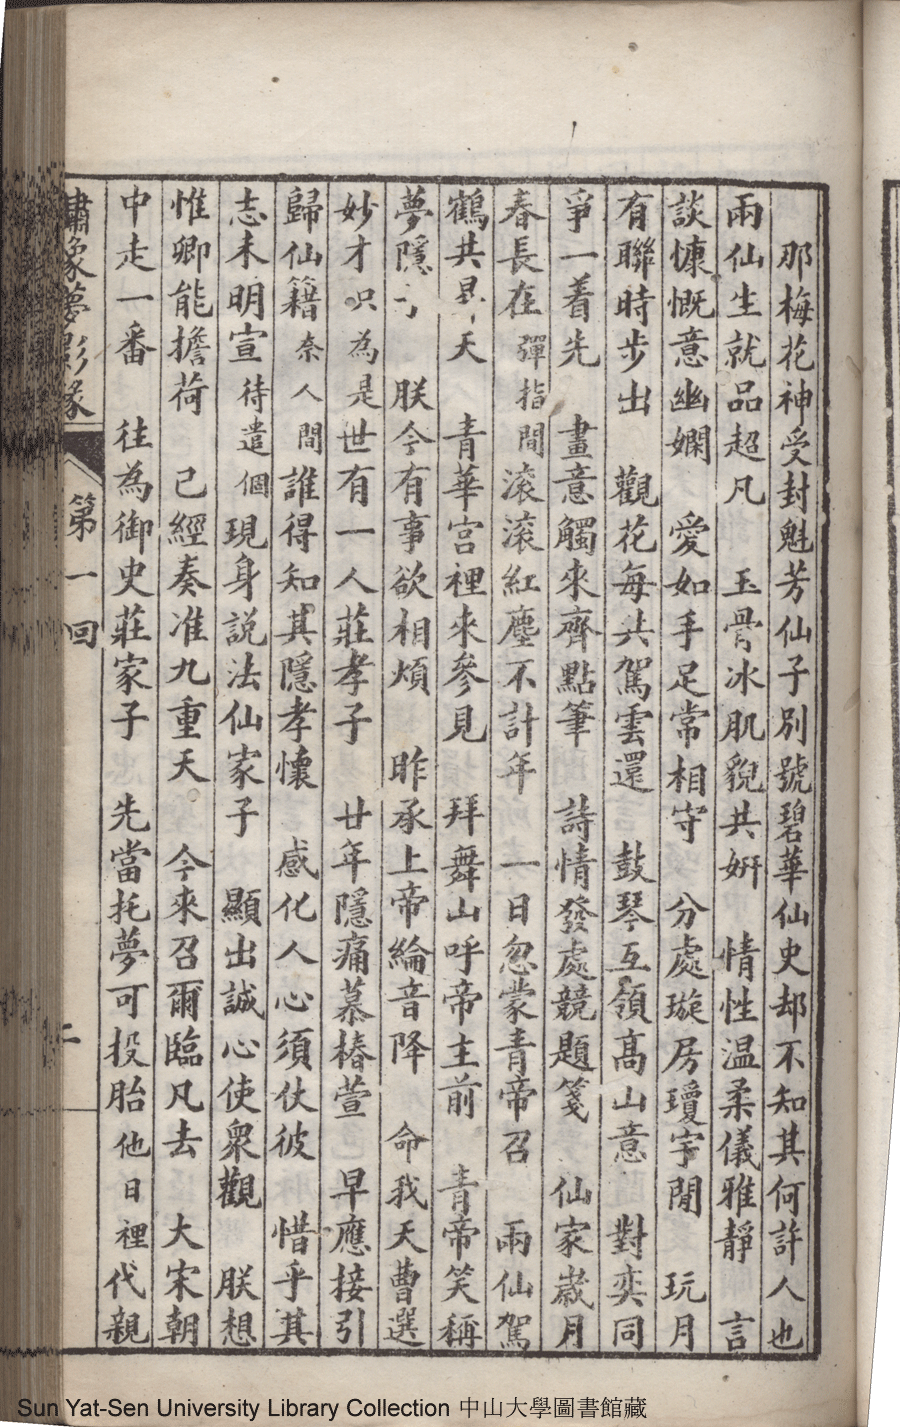 那梅花神受封魁芳仙子別號碧華仙史却不知其何許人也
兩仙生就品超凡 玉骨冰肌貌共妍 情性温柔儀雅靜 言
談慷慨意幽嫻 愛如手足常相守 分處璇房瓊宇閒 玩月
有聯時步出 觀花每共駕雲還 鼓琴互領高山意 對奕同
爭一着先 畫意觸來齊點筆 詩情發處競題箋 仙家歲月
春長在 彈指間滚滚紅塵不計年 一日忽蒙青帝召 兩仙駕
鶴共 天 青華宮裡來參見 拜舞山呼帝主前 青帝笑稱
夢隱 朕今有事欲相煩 昨承上帝綸音降 命我天曹選
妙才 只為是世有一人莊孝子 廿年隱痛慕椿萱 早應接引
歸仙籍 奈人間誰得知其隱孝懷 感化人心須仗彼 惜乎其
志未明宣 待遣個現身説法仙家子 顯出誠心使衆觀 朕想
惟卿能擔荷 己經奏准九重天 今來召爾臨凡去 大宋朝
中走一番 往為御史莊家子 先當托夢可投胎 他日裡代親
夢影緣
第一回
二
Sun Yat-Sen University Library Collection 中山大學圖書館藏